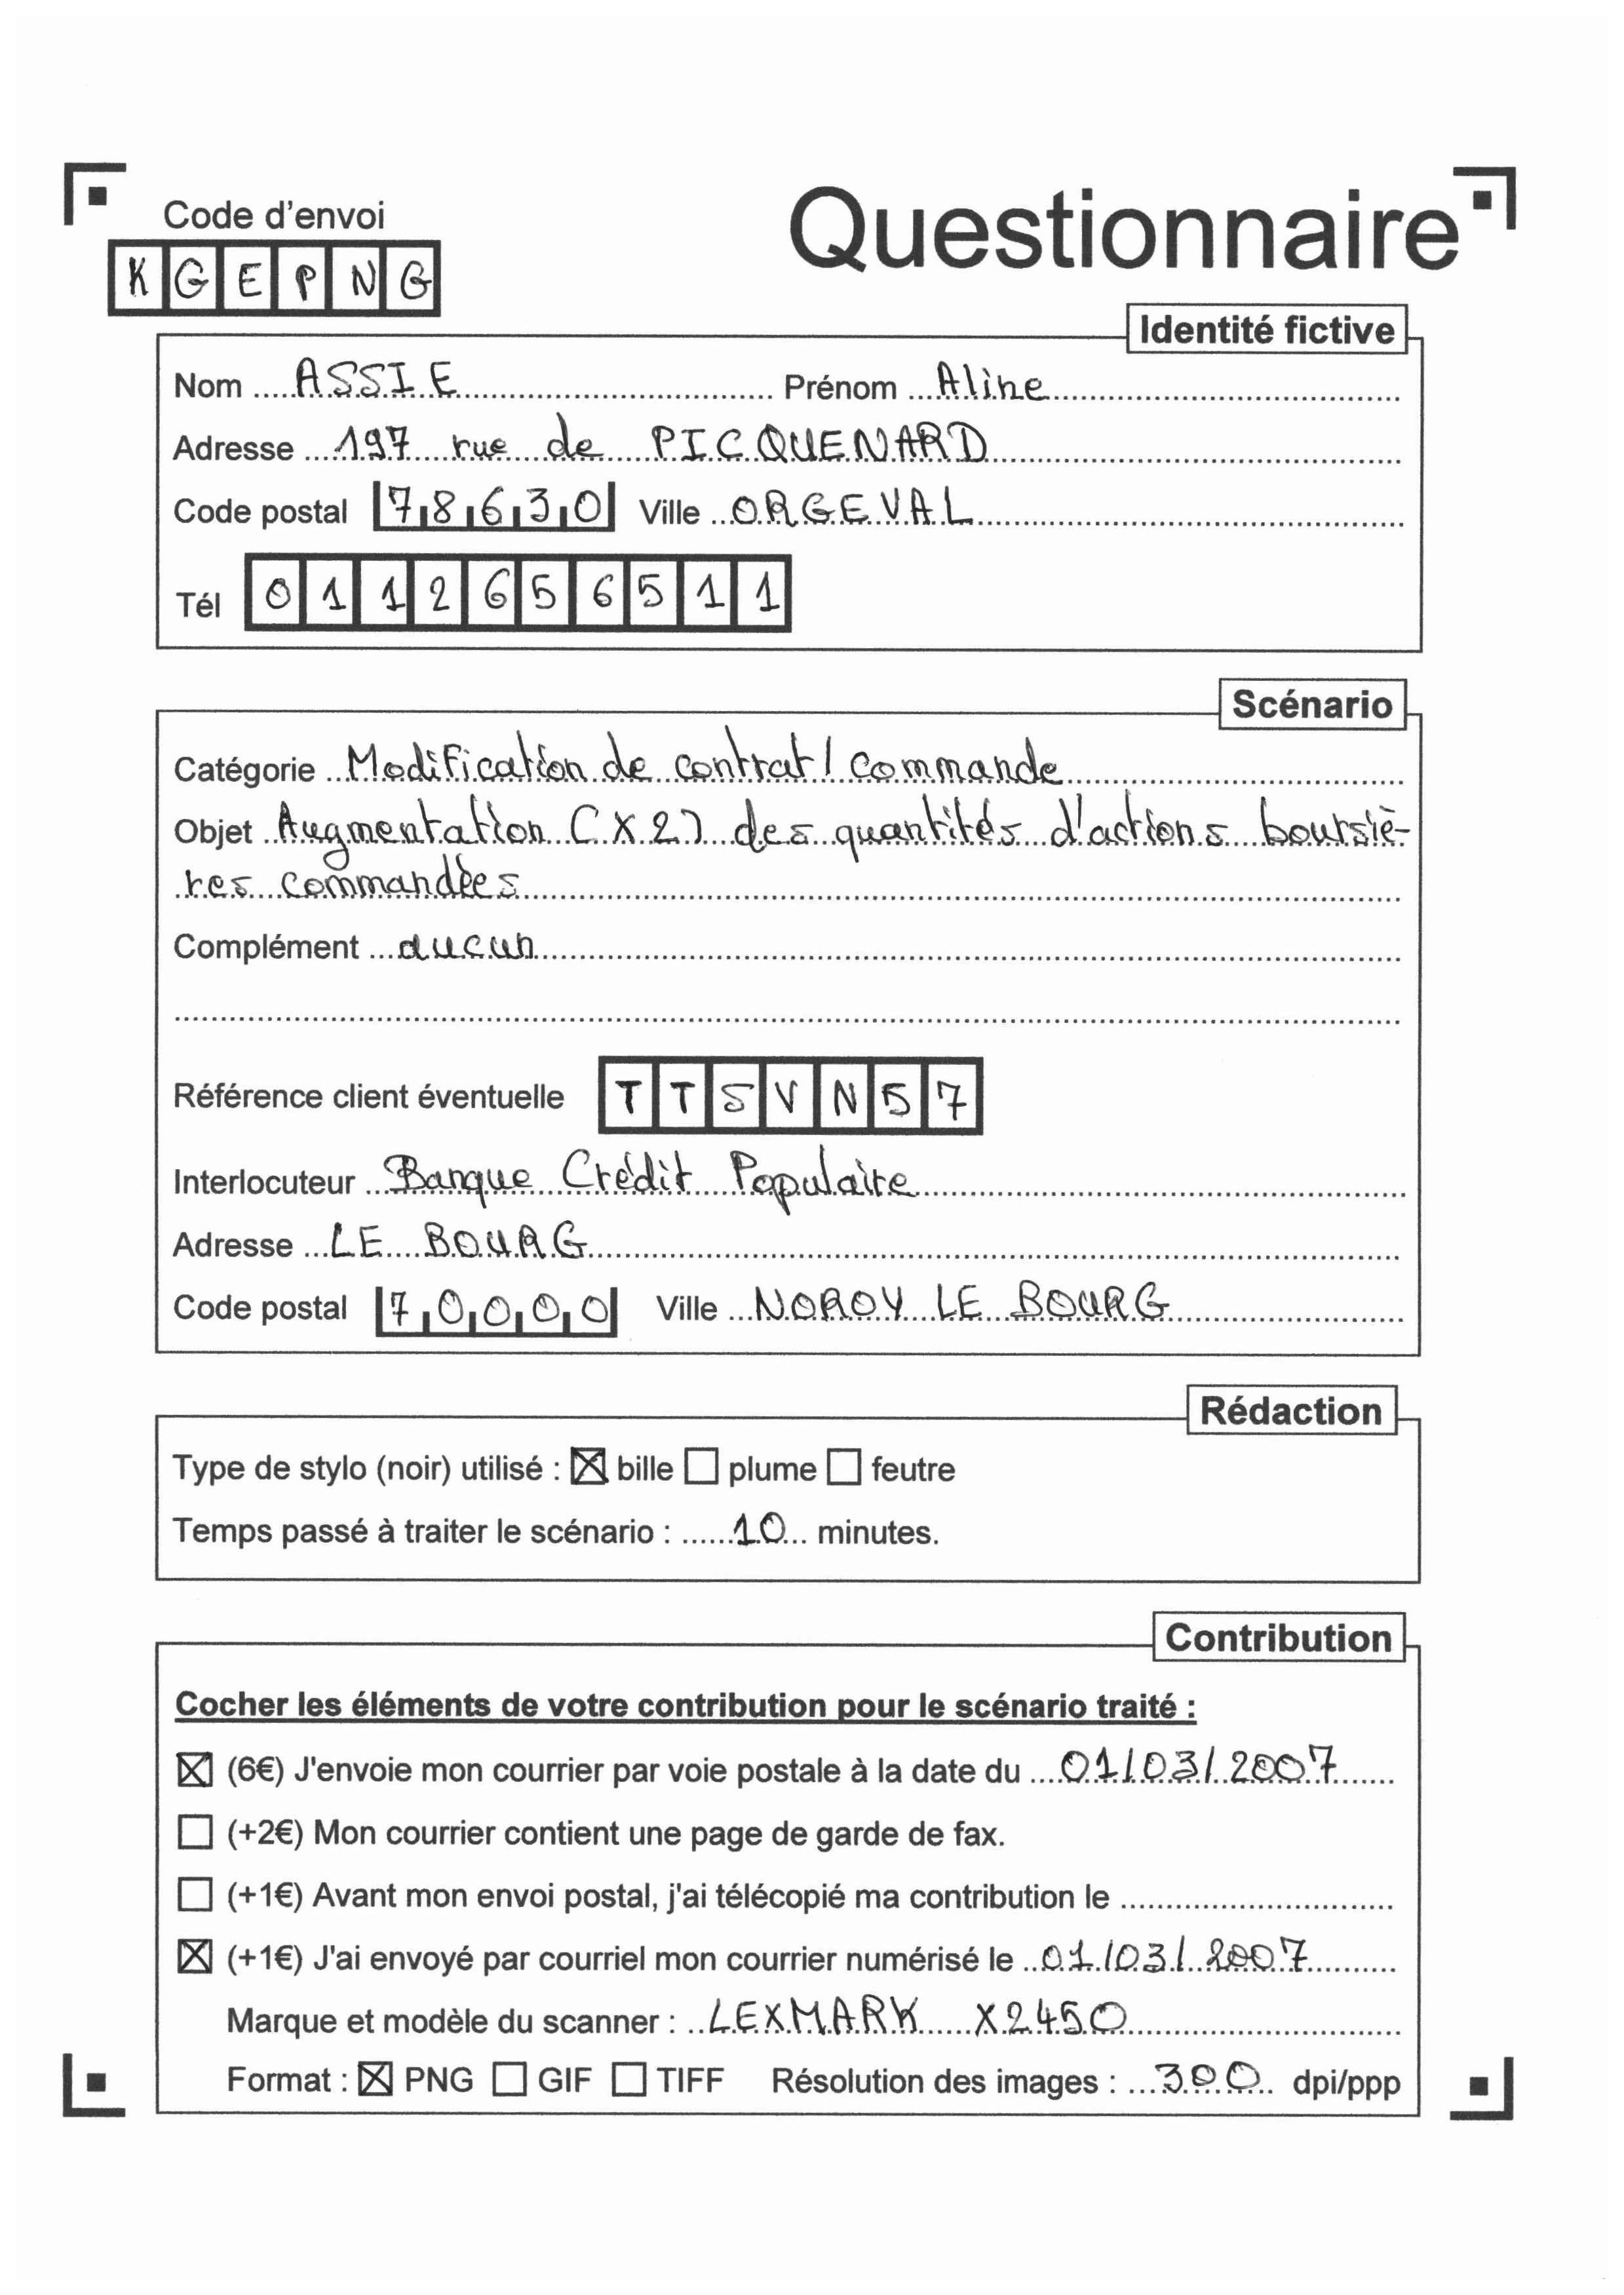 Code d'envoi
Questionnaire
KGEPNG
Identité fictive
Nom ASSIE Prénom Aline
Adresse 197 rue de PICQUENARD
Code postal 78630 Ville ORGEVAL
Tél 0112656511
Scénario
Catégorie Modification de contrat / commande
Objet Augmentation (X2) des quantités d'actions boursiè-
res commandées
Complément aucun
Référence client éventuelle TTSVN57
Interlocuteur Banque Crédit Populaire
Adresse LE BOURG
Code postal 70000 Ville NOROY LE BOURG
Rédaction
Type de stylo (noir) utilisé : ☒ bille ☐ plume ☐ feutre
Temps passé à traiter le scénario : 10 minutes.
Contribution
Cocher les éléments de votre contribution pour le scénario traité :
☒ (6€) J'envoie mon courrier par voie postale à la date du 01/03/2007
☐ (+2€) Mon courrier contient une page de garde de fax.
☐ (+1€) Avant mon envoi postal, j'ai télécopié ma contribution le
☒ (+1€) J'ai envoyé par courriel mon courrier numérisé le 01/03/2007
Marque et modèle du scanner : LEXMARK X2450
Format : ☒ PNG ☐ GIF ☐ TIFF Résolution des images : 300 dpi/ppp